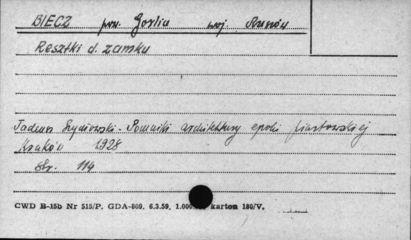 BIECZ pow. Gorlice woj. Rzeszów
Resztki d. zamku
Tadeusz Szydłowski - Pomniki architektury epoki piastowskiej
Kraków 1928
Str. 114
CWD B-15b Nr 515/P. GDA-809. 6.3.59. 1.000. karton 180/V.